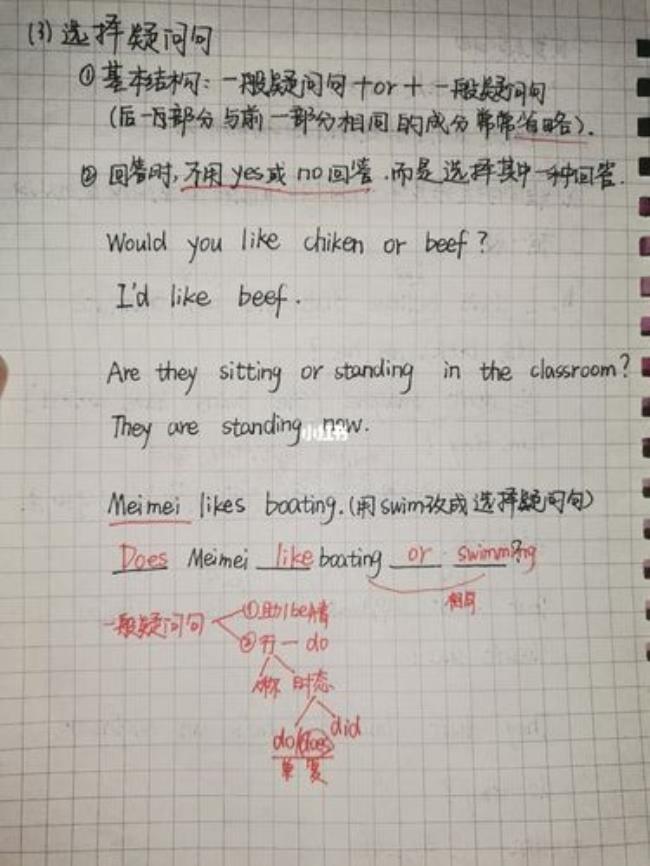 (3) 选择疑问句
① 基本结构句：一般疑问句 + or + 一般疑问句
(后一部分与前一部分相同的成分常常省略).
② 回答时，不用 yes 或 no 回答，而是选择其中一种回答.
Would you like chiken or beef?
I'd like beef.
Are they sitting or standing in the classroom?
They are standing now.
小红书
Meimei likes boating. (用swim改成选择疑问句)
Does Meimei like boating or swimming?
相同
一般疑问句
①助/be/情
②行一do
人称 时态
do/does did
单 复